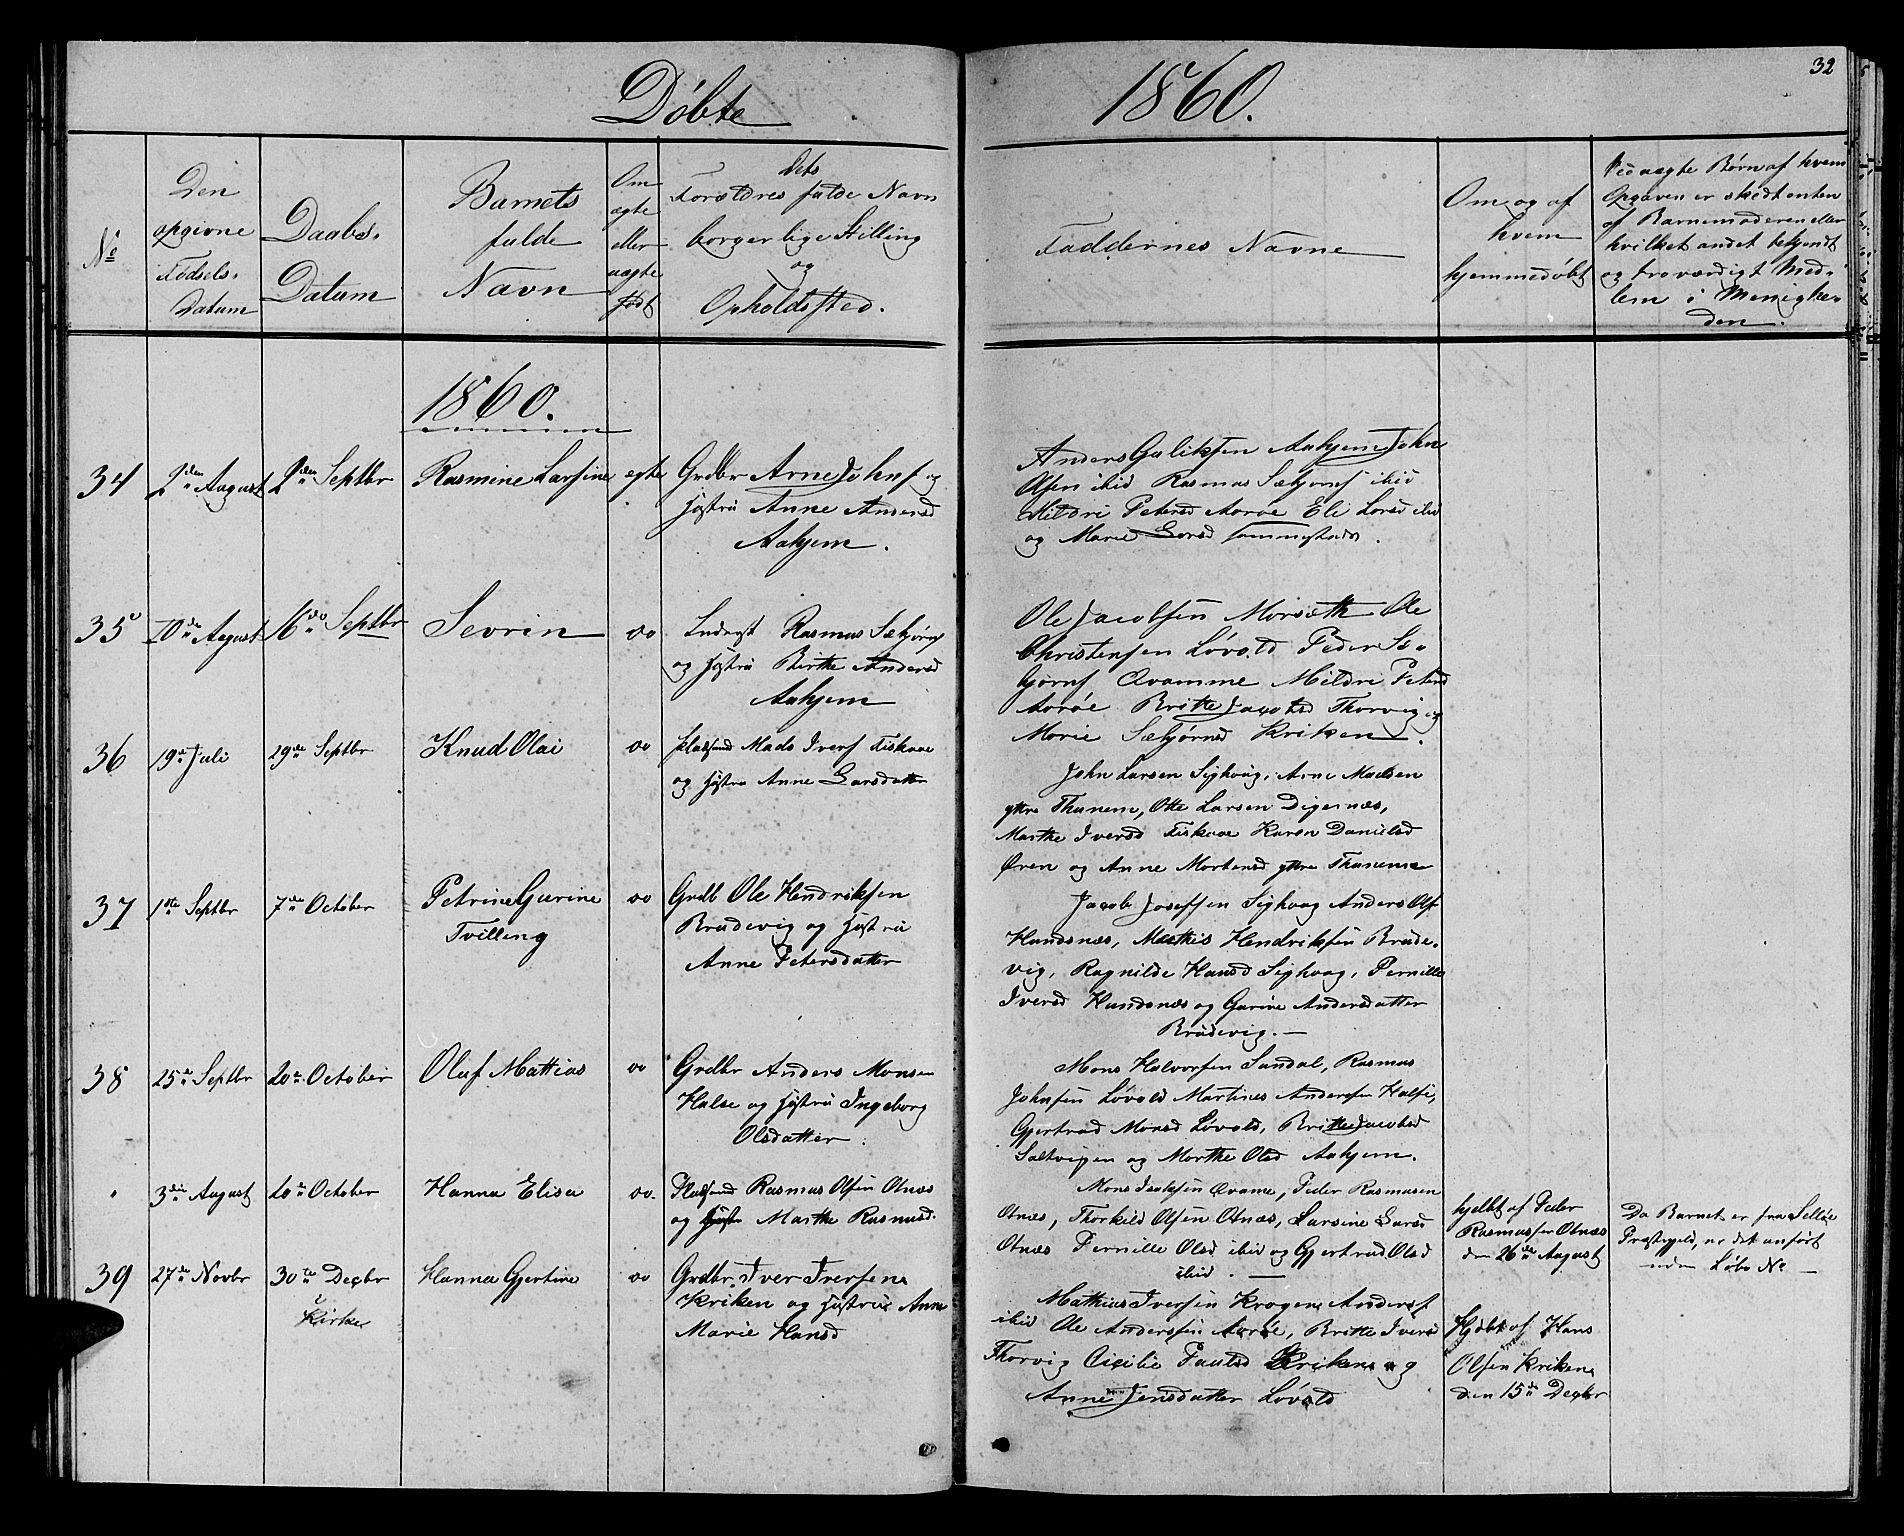 Døbte
1860.
32
No
Den
opgivne
Fødsels-
Datum
Daabs-
Datum
Barnets
fulde
Navn
Om
ægte
eller
uægte
født
Dets
Forældres fulde Navn
borgerlige Stilling
og
Opholdssted.
Faddernes Navne
Om og af
hvem
hjemmedøbt
Ved uægte Børn af hvem
Opgaven er skedt enten
af Barnemoderen eller
hvilket andet bekjendt
og troværdigt Med-
lem i Menighe-
den.
1860.
34
2den August
2den Septbr
Rasmine Larsine
egte
Grdbr Arne Johns og
Hustru Anne Andersd
Aahjem.
Anders Guliksen Aahjem John
Olsen ibid Rasmus Sæbjørns ibid
Mildri Petersd Aarøe Eli Larsd ibid
og Marie Larsd sammestads.
35
10de August
16de Septbr
Sevrin
do
Inderst Rasmus Sæbjørns
og Hustru Birthe Andersd
Aahjem
Ole Jacobsen Morsæth Ole
Christensen Løvold Peder Sæ-
bjørns Qvamme Mildri Petersd
Aarøe Brithe Jacobsd Thorvig og
Marie Sæbjørnsd Kriken.
36
19de Juli
29de Septbr
Knud Olai
do
Pladsmd Mads Ivers Fiskaae
og Hustru Anne Larsdatter
John Larsen Sighvag, Arne Madsen
ytre Thunem, Otte Larsen Digernæs,
Marthe Iversd Fiskaae Karen Danielsd
Øren og Anne Mortensd ytre Thunem
37
1ste Septbr
7de October
Petrine Gurine
Tvilling
do
Grdb Ole Hendriksen
Brudevig og Hustru
Anne Petersdatter
Jacob Joseffsen Sighvag Anders Ols
Hundsnæs, Mathis Hendriksen Brude-
vig, Ragnilde Hansd Sighvag, Pernille
Iversd Hundsnæs og Gurine Andersdatter
Brudevig. —
38
25de Septbr
20de October
Oluf Mattias
do
Grdbr Anders Monsen
Halse og Hustru Ingeborg
Olsdatter.
Mons Halvorsen Sundal, Rasmus
Johnsen Løvold Martines Andersen Halse,
Gjertrud Monsd Løvold, Brithe Jacobsd
Saltvigen og Marthe Olsd Aahjem.
3die August
20de October
Hanna Elisa
do.
Pladsmd Rasmus Olsen Otnæs
og Hustr Marthe Rasmusd.
Mons Isaksen Qvame, Peder Rasmusen
Otnæs, Thorkild Olsen Otnæs, Larsine Larsd
Otnæs Pernille Olsd ibid og Gjertrud Olsd
ibid. —
hjdbt af Peder
Rasmussen Otnæs
den 26de August
Da Barnet er fra Selløe
Præstegjeld, er det anført
uden Løbe No —
39
27de Novbr
30te Decbr
i
Kirken
Hanna Gjertine
do
Grdbr. Iver Iversen
Kriken og Hustru Anne
Marie Hansd
Mathias Iversen Krogen Anders
ibid Ole Andersen Aarøe, Britte Iversd
Thorvig Cicilie Paulsd Kriken og
Anne Jensdatter Løvold
Hjdbt af Hans
Olsen Kriken
den 15de Decbr